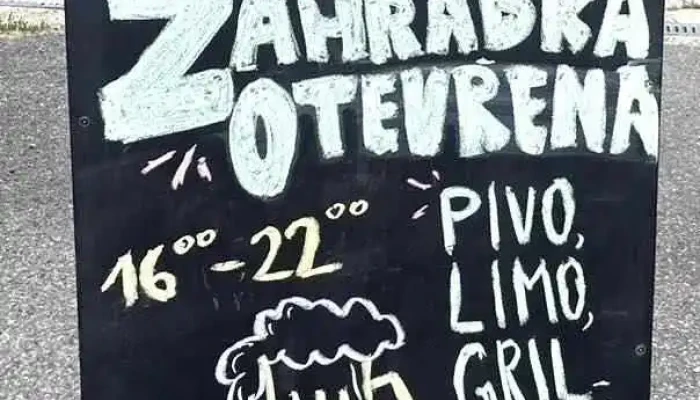 ZAHRÁDKA
OTEVŘENÁ
16⁰⁰-22⁰⁰
PIVO,
LIMO,
GRIL-